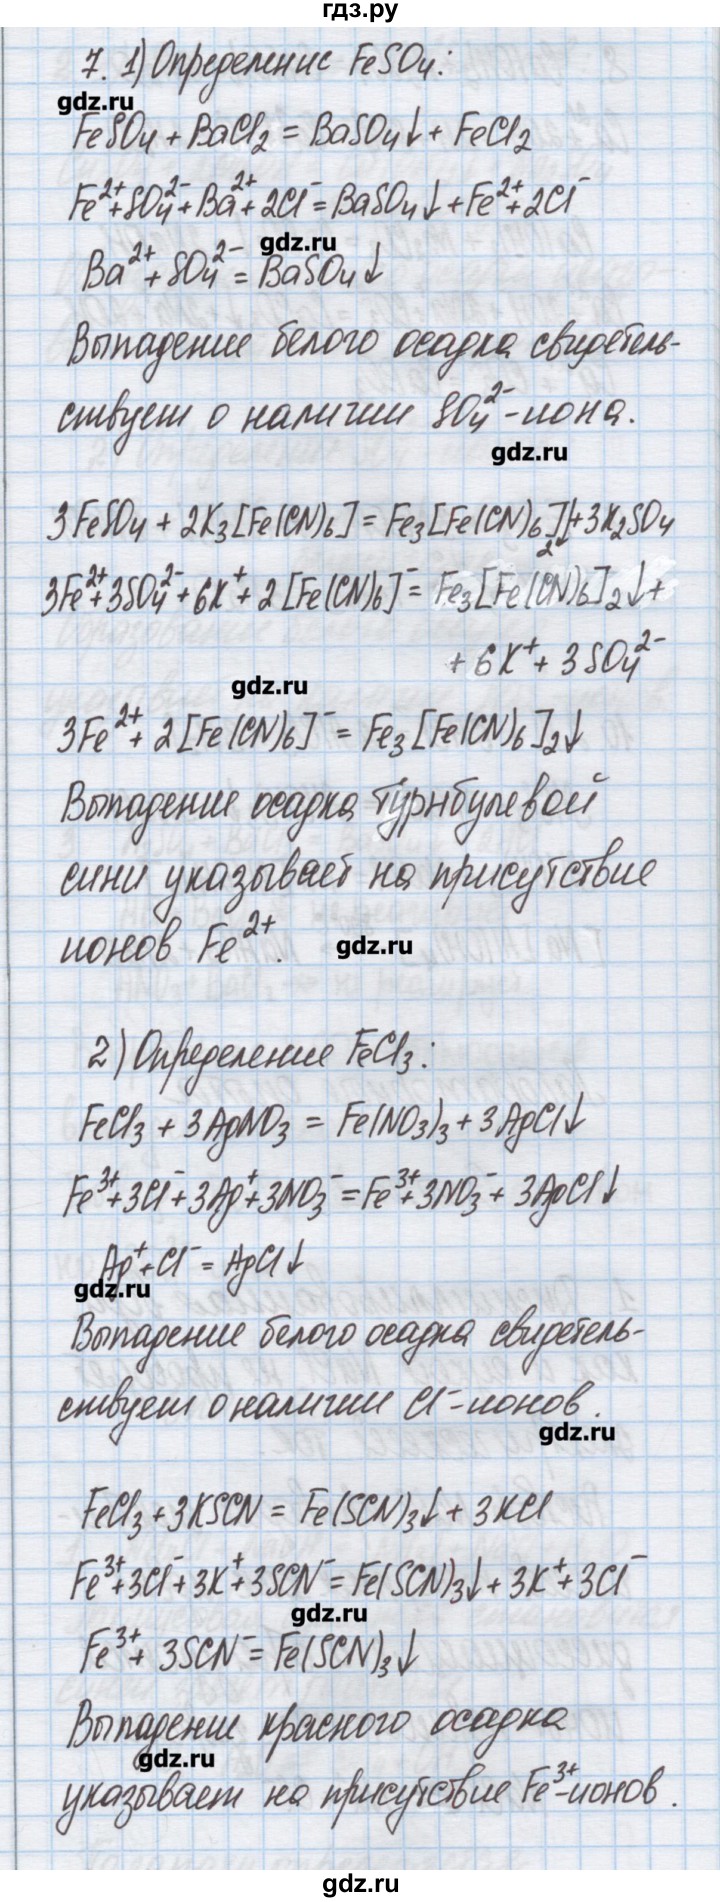 гдз.ру
7. 1) Определение FeSO₄:
gdz.ru
FeSO₄ + BaCl₂ = BaSO₄↓ + FeCl₂
Fe²⁺ + SO₄²⁻ + Ba²⁺ + 2Cl⁻ = BaSO₄↓ + Fe²⁺ + 2Cl⁻
gdz.ru
Ba²⁺ + SO₄²⁻ = BaSO₄↓
Выпадение белого осадка свидетель-
ствует о наличии SO₄²⁻-иона.
gdz.ru
3FeSO₄ + 2K₃[Fe(CN)₆] = Fe₃[Fe(CN)₆]₂↓ + 3K₂SO₄
3Fe²⁺ + 3SO₄²⁻ + 6K⁺ + 2[Fe(CN)₆]⁻ = Fe₃[Fe(CN)₆]₂↓ +
+ 6K⁺ + 3SO₄²⁻
gdz.ru
3Fe²⁺ + 2[Fe(CN)₆]⁻ = Fe₃[Fe(CN)₆]₂↓
Выпадение осадка турнбулевой
сини указывает на присутствие
ионов Fe²⁺.
gdz.ru
2) Определение FeCl₃:
FeCl₃ + 3AgNO₃ = Fe(NO₃)₃ + 3AgCl↓
Fe³⁺ + 3Cl⁻ + 3Ag⁺ + 3NO₃⁻ = Fe³⁺ + 3NO₃⁻ + 3AgCl↓
Ag⁺ + Cl⁻ = AgCl↓
gdz.ru
Выпадение белого осадка свидетель-
ствует о наличии Cl⁻-ионов.
gdz.ru
FeCl₃ + 3KSCN = Fe(SCN)₃↓ + 3KCl
Fe³⁺ + 3Cl⁻ + 3K⁺ + 3SCN⁻ = Fe(SCN)₃↓ + 3K⁺ + 3Cl⁻
gdz.ru
Fe³⁺ + 3SCN⁻ = Fe(SCN)₃↓
Выпадение красного осадка
gdz.ru
указывает на присутствие Fe³⁺-ионов.
gdz.ru